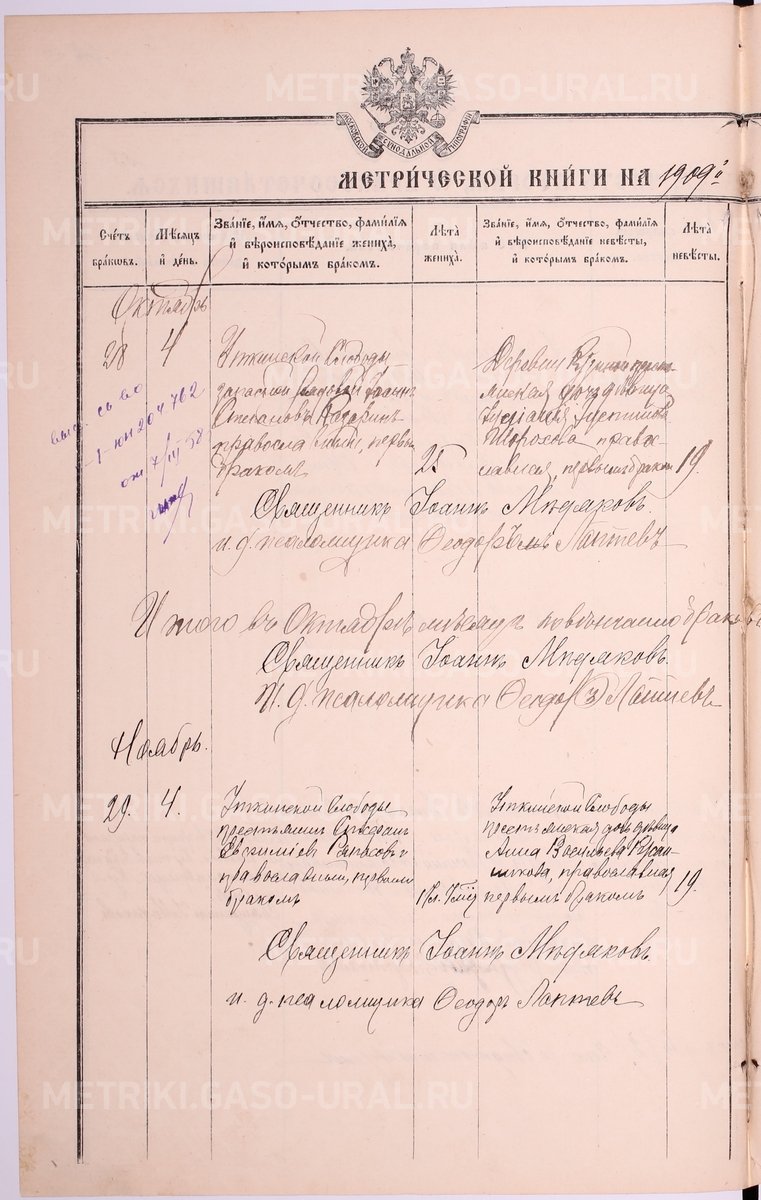 METRIKI.GASO-URAL.RU
МОСКОВСКОЙ СѴНОДАЛЬНОЙ ТИПОГРАФІИ
МЕТРИ́ЧЕСКОЙ КНИ́ГИ НА 1909
Сче́тъ бра́кѡвъ.
Мѣ́сяцъ и҆ де́нь.
Зва́нїе, и҆́мя, ѻ҆́тчество, фами́лїя
и҆ вѣроисповѣ́данїе жениха̀,
и҆ кото́рымъ бра́комъ.
Лѣта̀ жениха̀.
Зва́нїе, и҆́мя, ѻ҆́тчество, фами́лїя
и҆ вѣроисповѣ́данїе невѣ́сты,
и҆ кото́рымъ бра́комъ.
Лѣта̀ невѣ́сты.
Октябрь
28 4
Уткинской Слободы
запасной рядовой Іоаннъ
Степановъ
православный, первымъ
бракомъ
25
Деревни
дѣвица
права-
славная, первымъ бракомъ
19.
выд. св-во
-I-юн 204762
от 7/III 58
Священникъ Іоаннъ Мѣдяковъ.
и. д. псаломщика Ѳеодоръ Лаптевъ
Итого въ Октябрѣ мѣсяцѣ повѣнчано браковъ
Священникъ Іоаннъ Мѣдяковъ.
И. д. псаломщика Ѳеодоръ Лаптевъ
Ноябрь.
29. 4.
Уткинской Слободы
крестьянинъ
Евѳиміевъ
православный, первымъ
бракомъ
Уткинской Слободы
крестьянская дочь дѣвица
Анна Васильева
православная
первымъ бракомъ
19.
Священникъ Іоаннъ Мѣдяковъ.
и. д. псаломщика Ѳеодоръ Лаптевъ